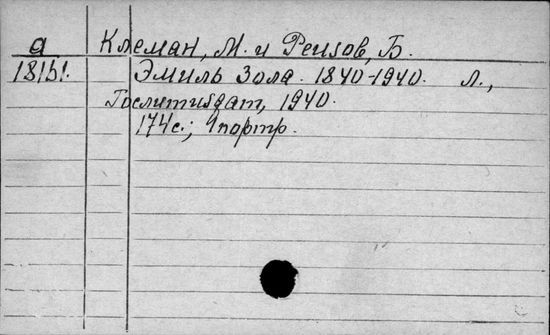 а Клеман, М. и Реизов, Б.
18151. Эмиль Зола. 1840-1940. Л.,
Гослитиздат, 1940.
174с.; 1 портр.